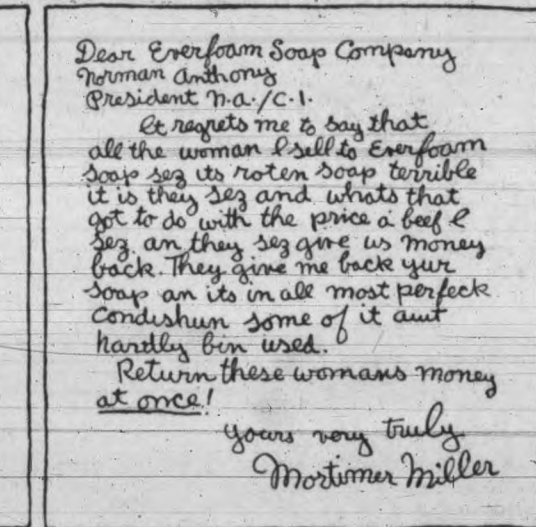 Dear Everfoam Soap Company
Norman Anthony
President N.A./C.I.
It regrets me to say that
all the woman I sell to Everfoam
Soap sez its roten soap terrible
it is they sez and whats that
got to do with the price a beef I
sez an they sez give us money
back. They give me back yur
soap an its in all most perfeck
condishun some of it aint
hardly bin used.
Return these womans money
at once!
yours very truly
Mortimer Miller